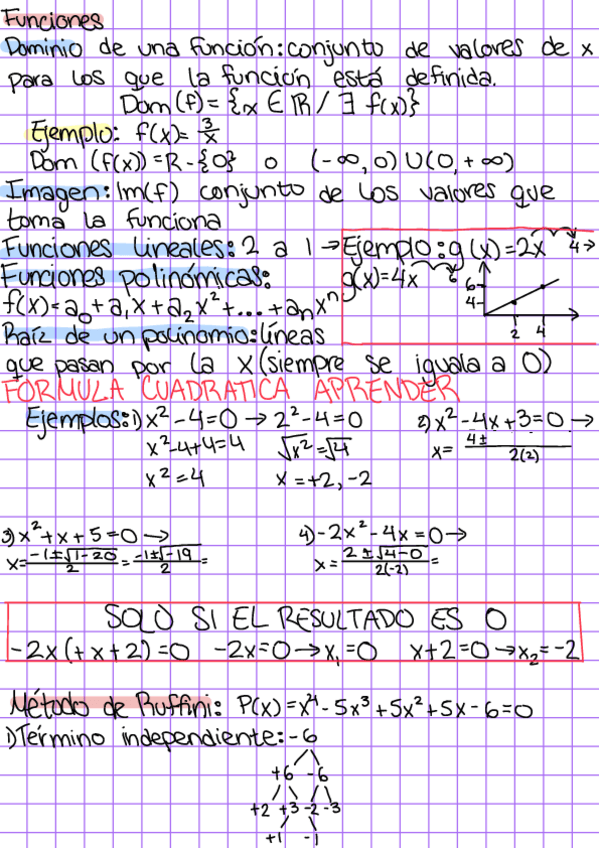 Funciones
Dominio de una función: conjunto de valores de x
para los que la función está definida.
Dom (f) = {x ∈ ℝ / ∃ f(x)}
Ejemplo: f(x) = 3/x
Dom (f(x)) = R - {0} o (-∞, 0) U (0, +∞)
Imagen: Im(f) conjunto de los valores que
toma la funciona
Funciones lineales: 2 a 1 → Ejemplo: g(x) = 2x 4→
Funciones polinómicas: g(x) = 4x 6
f(x) = a₀ + a₁x + a₂x² + ... + aₙxⁿ
6
4
2 4
Raíz de un polinomio: líneas
que pasan por la x (siempre se iguala a 0)
FÓRMULA CUADRATICA APRENDER
Ejemplos: 1) x² - 4 = 0 → 2² - 4 = 0 2) x² - 4x + 3 = 0 →
x² - 4 + 4 = 4 √x² = √4 x = 4± / 2(2)
x² = 4 x = +2, -2
3) x² + x + 5 = 0 → 4) -2x² - 4x = 0 →
x = -1±√1-20 / 2 = -1±√-19 / 2 = x = 2±√4-0 / 2(-2) =
SOLO SI EL RESULTADO ES 0
-2x (+x+2) = 0 -2x = 0 → x₁ = 0 x+2 = 0 → x₂ = -2
Método de Ruffini: P(x) = x⁴ - 5x³ + 5x² + 5x - 6 = 0
1) Término independiente: -6
+6 -6
+2 +3 -2 -3
+1 -1